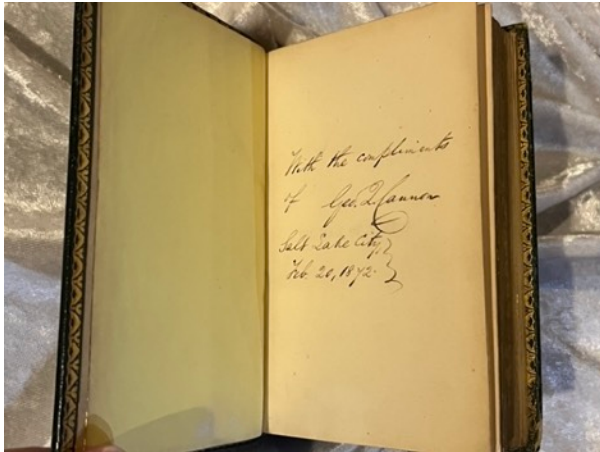 With the compliments
of Geo. Q. Cannon
Salt Lake City,
Feb. 20, 1872.